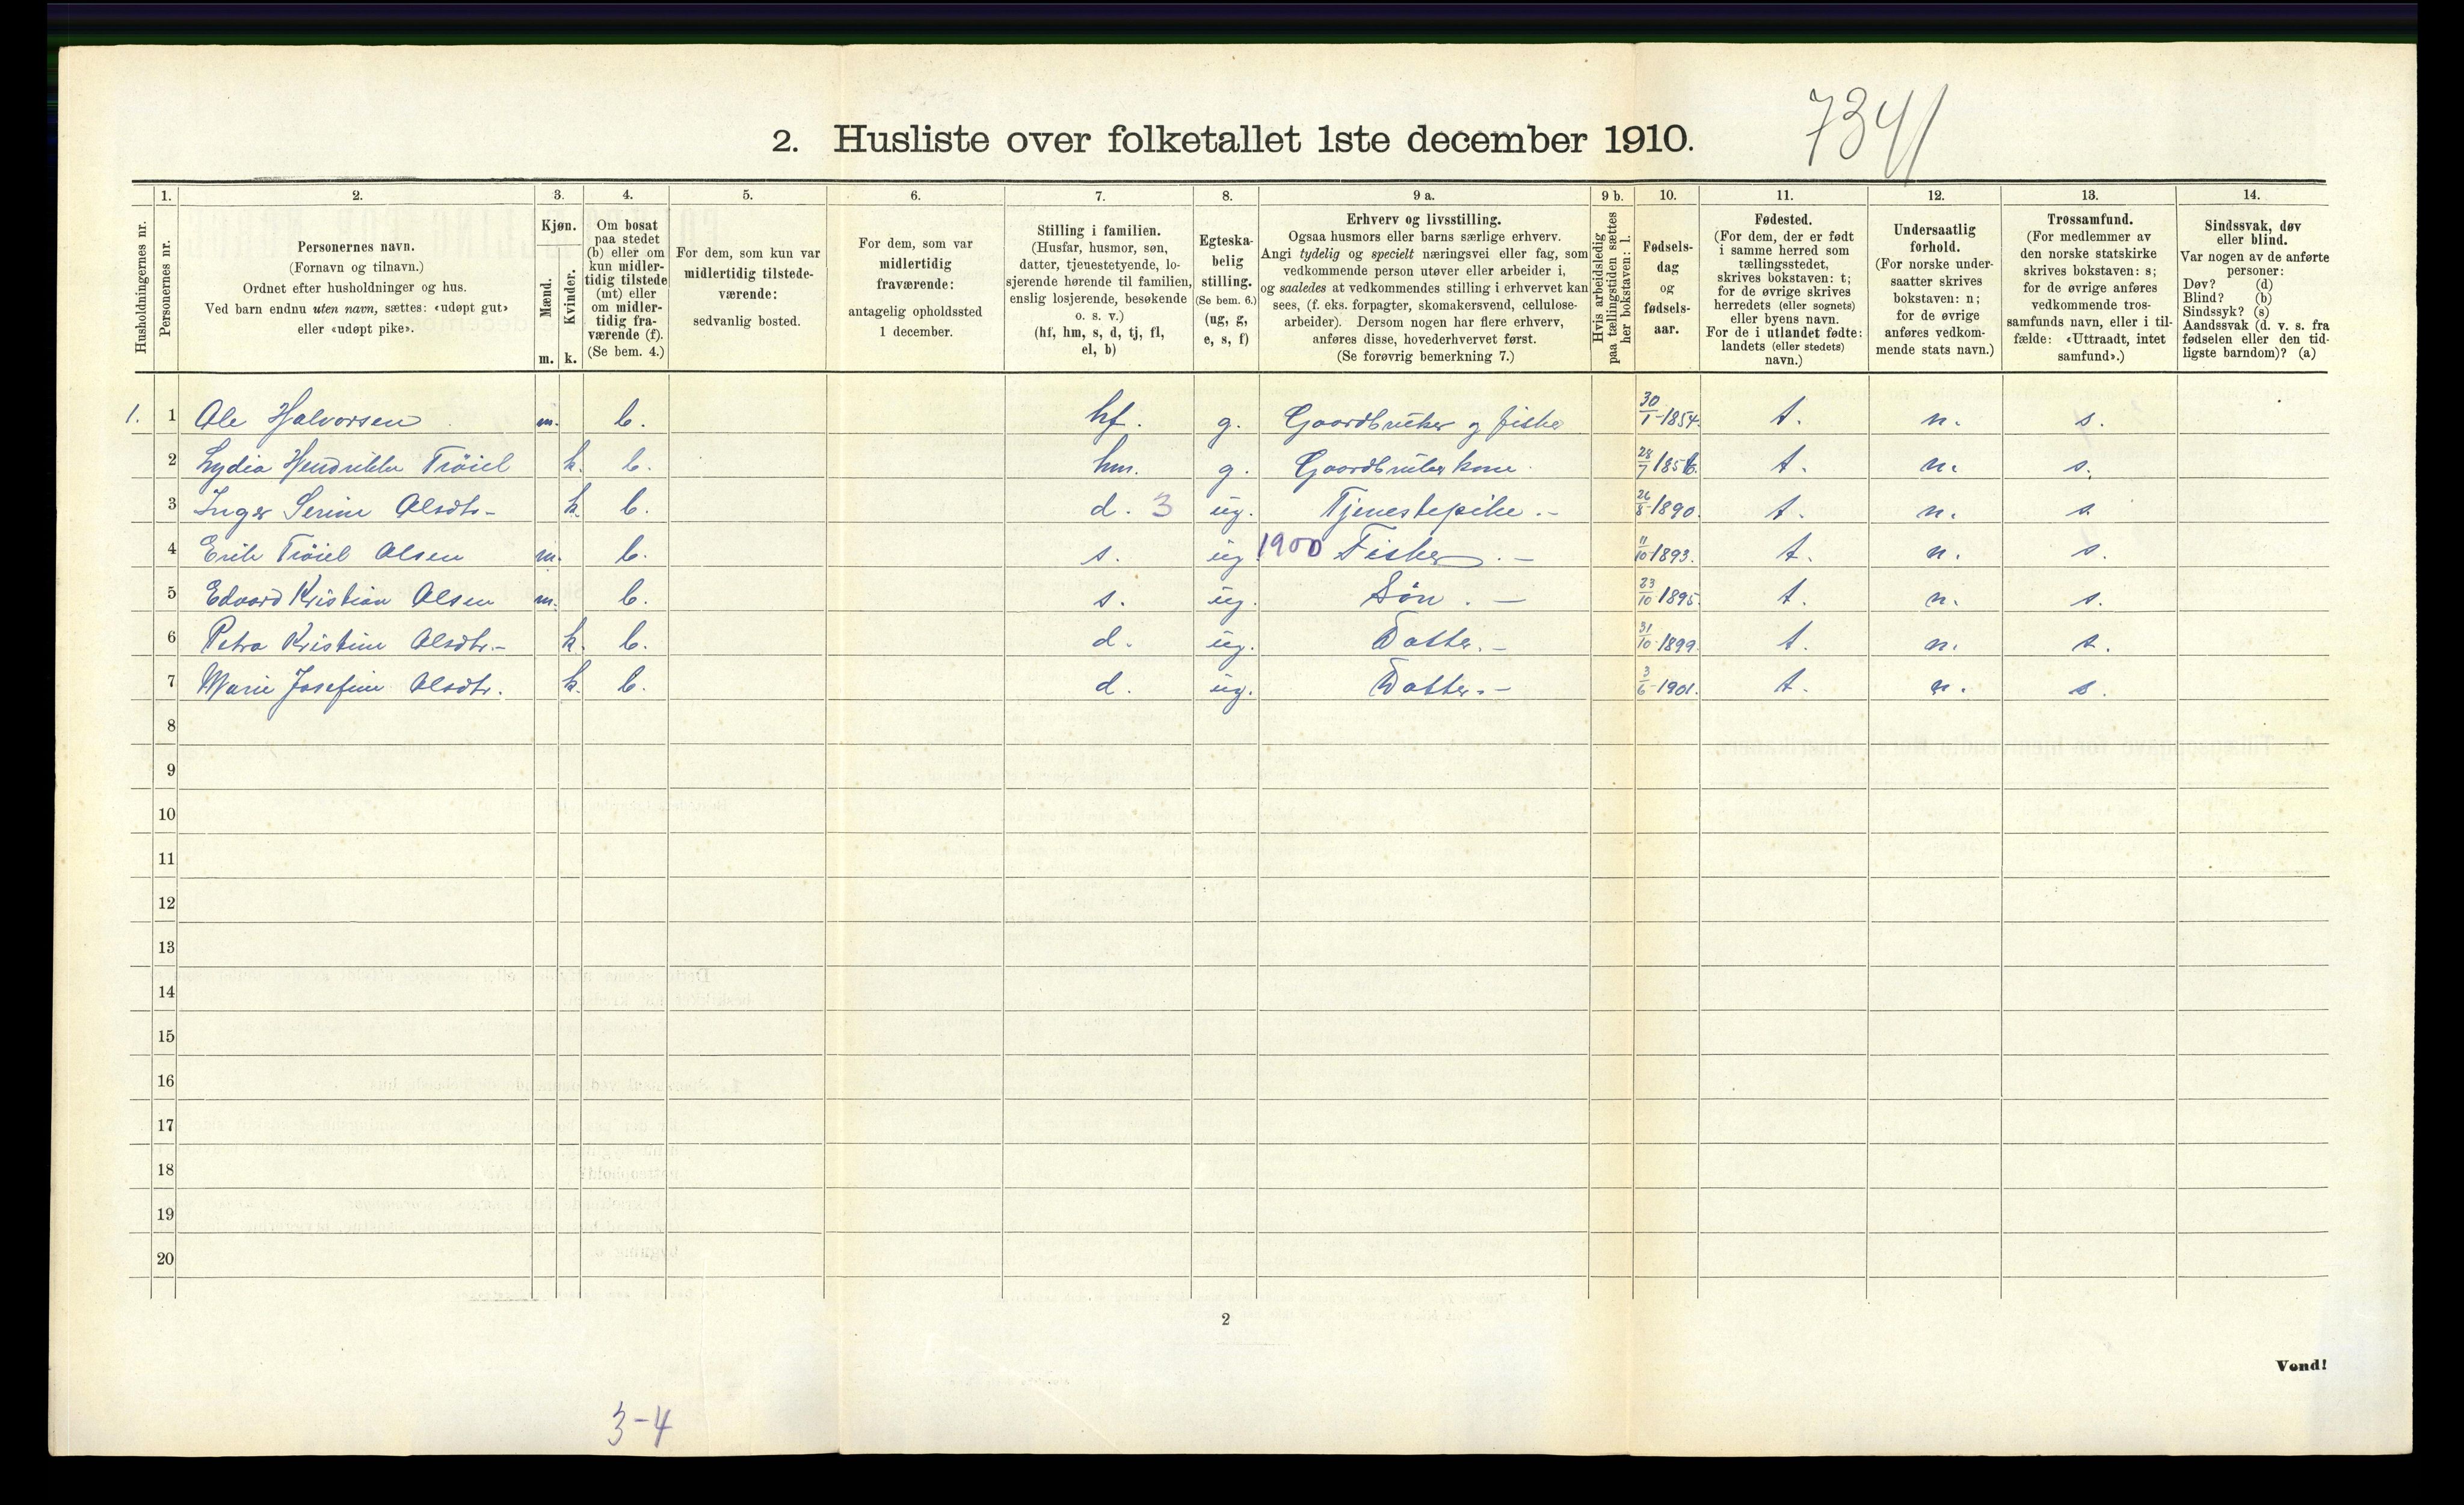 7341
2. Husliste over folketallet 1ste december 1910.
1. 2. 3. 4. 5. 6. 7. 8. 9 a. 9 b. 10. 11. 12. 13. 14.
Husholdningernes nr.
Personernes nr.
Personernes navn.
(Fornavn og tilnavn.)
Ordnet efter husholdninger og hus.
Ved barn endnu uten navn, sættes: «udøpt gut»
eller «udøpt pike».
Kjøn.
Mænd.
Kvinder.
m. k.
Om bosat
paa stedet
(b) eller om
kun midler-
tidig tilstede
(mt) eller
om midler-
tidig fra-
værende (f).
(Se bem. 4.)
For dem, som kun var
midlertidig tilstede-
værende:
sedvanlig bosted.
For dem, som var
midlertidig
fraværende:
antagelig opholdssted
1 december.
Stilling i familien.
(Husfar, husmor, søn,
datter, tjenestetyende, lo-
sjerende hørende til familien,
enslig losjerende, besøkende
o. s. v.)
(hf, hm, s, d, tj, fl,
el, b)
Egteska-
belig
stilling.
(Se bem. 6.)
(ug, g,
e, s, f)
Erhverv og livsstilling.
Ogsaa husmors eller barns særlige erhverv.
Angi tydelig og specielt næringsvei eller fag, som
vedkommende person utøver eller arbeider i,
og saaledes at vedkommendes stilling i erhvervet kan
sees, (f. eks. forpagter, skomakersvend, cellulose-
arbeider). Dersom nogen har flere erhverv,
anføres disse, hovederhvervet først.
(Se forøvrig bemerkning 7.)
Hvis arbeidsledig
paa tællingstiden sættes
her bokstaven: l.
Fødsels-
dag
og
fødsels-
aar.
Fødested.
(For dem, der er født
i samme herred som
tællingsstedet,
skrives bokstaven: t;
for de øvrige skrives
herredets (eller sognets)
eller byens navn.
For de i utlandet fødte:
landets (eller stedets)
navn.)
Undersaatlig
forhold.
(For norske under-
saatter skrives
bokstaven: n;
for de øvrige
anføres vedkom-
mende stats navn.)
Trossamfund.
(For medlemmer av
den norske statskirke
skrives bokstaven: s;
for de øvrige anføres
vedkommende tros-
samfunds navn, eller i til-
fælde: «Uttraadt, intet
samfund».)
Sindssvak, døv
eller blind.
Var nogen av de anførte
personer:
Døv? (d)
Blind? (b)
Sindssyk? (s)
Aandssvak (d. v. s. fra
fødselen eller den tid-
ligste barndom)? (a)
1. 1 Ole Halvorsen m. b. hf. g. Gaardbruker og fisker 30/1-1854. t. n. s.
2 Lydia Hendrikke Trøiel k. b. hm. g. Gaardbruker kone. 28/7 1856. t. n. s.
3 Inger Serine Olsdtr- k. b. d. 3 ug. Tjenestepike.- 26/8-1890. t. n. s
4 Erik Trøiel Olsen m. b. s. ug. 1900 Fisker.- 11/10 1893. t. n. s.
5 Edvard Kristian Olsen m. b. s. ug. Søn.- 23/10 1895. t. n. s.
6 Petra Kristine Olsdtr.- k. b. d. ug. Datter.- 31/10-1899. t. n. s.
7 Marie Josefine Olsdtr. k. b. d. ug. Datter.- 3/6-1901. t. n. s.
8
9
10
11
12
13
14
15
16
17
18
19
20
2
Vend!
3-4